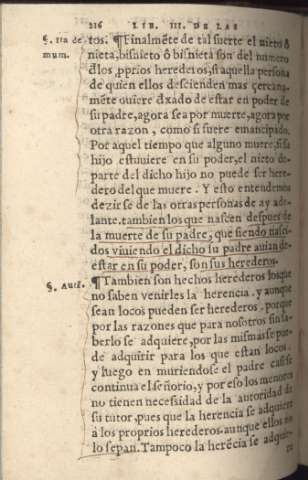 216 LIB. III. DE LAS
§. Ita de-
mum.
tos. ¶Finalmẽte de tal suerte el nieto ô
nieta, bisnieto ô bisnieta son del numero
dlos, pprios herederos, si aquella persona
de quien ellos descienden mas çercana-
mẽte ouiere dxado de estar en poder de
su padre, agora sea por muerte, agora por
otra razon, como si fuere emancipado.
Por aquel tiempo que alguno muere, si su
hijo estuuiere en su poder, el nieto de
parte del dicho hijo no puede ser here-
dero del que muere. Y esto entendemos
dezirse de las otras personas de ay ade-
lante. tambien los que nasçen despues de
la muerte de su padre, que siendo nasci-
dos viuiendo el dicho su padre auian de
estar en su poder, son sus herederos.
§. Aucẽ.
¶Tambien son hechos herederos los que
no saben venirles la herencia. y aunque
sean locos pueden ser herederos. porque
por las razones que para nosotros sin sa-
berlo se adquiere, por las mismas se pue-
de adquirir para los que estan locos.
y luego en muriendose el padre casi se
continua el señorio, y por eso los menores
no tienen necesidad de la autoridad de
su tutor, pues que la herencia se adquiere
à los proprios herederos. aunque ellos no
lo sepan. Tampoco la herẽcia se adquie-